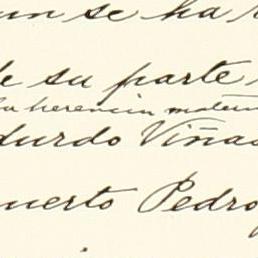 un se ha
de su parte
la herencia mater
durdo Viñas
uerto Pedro